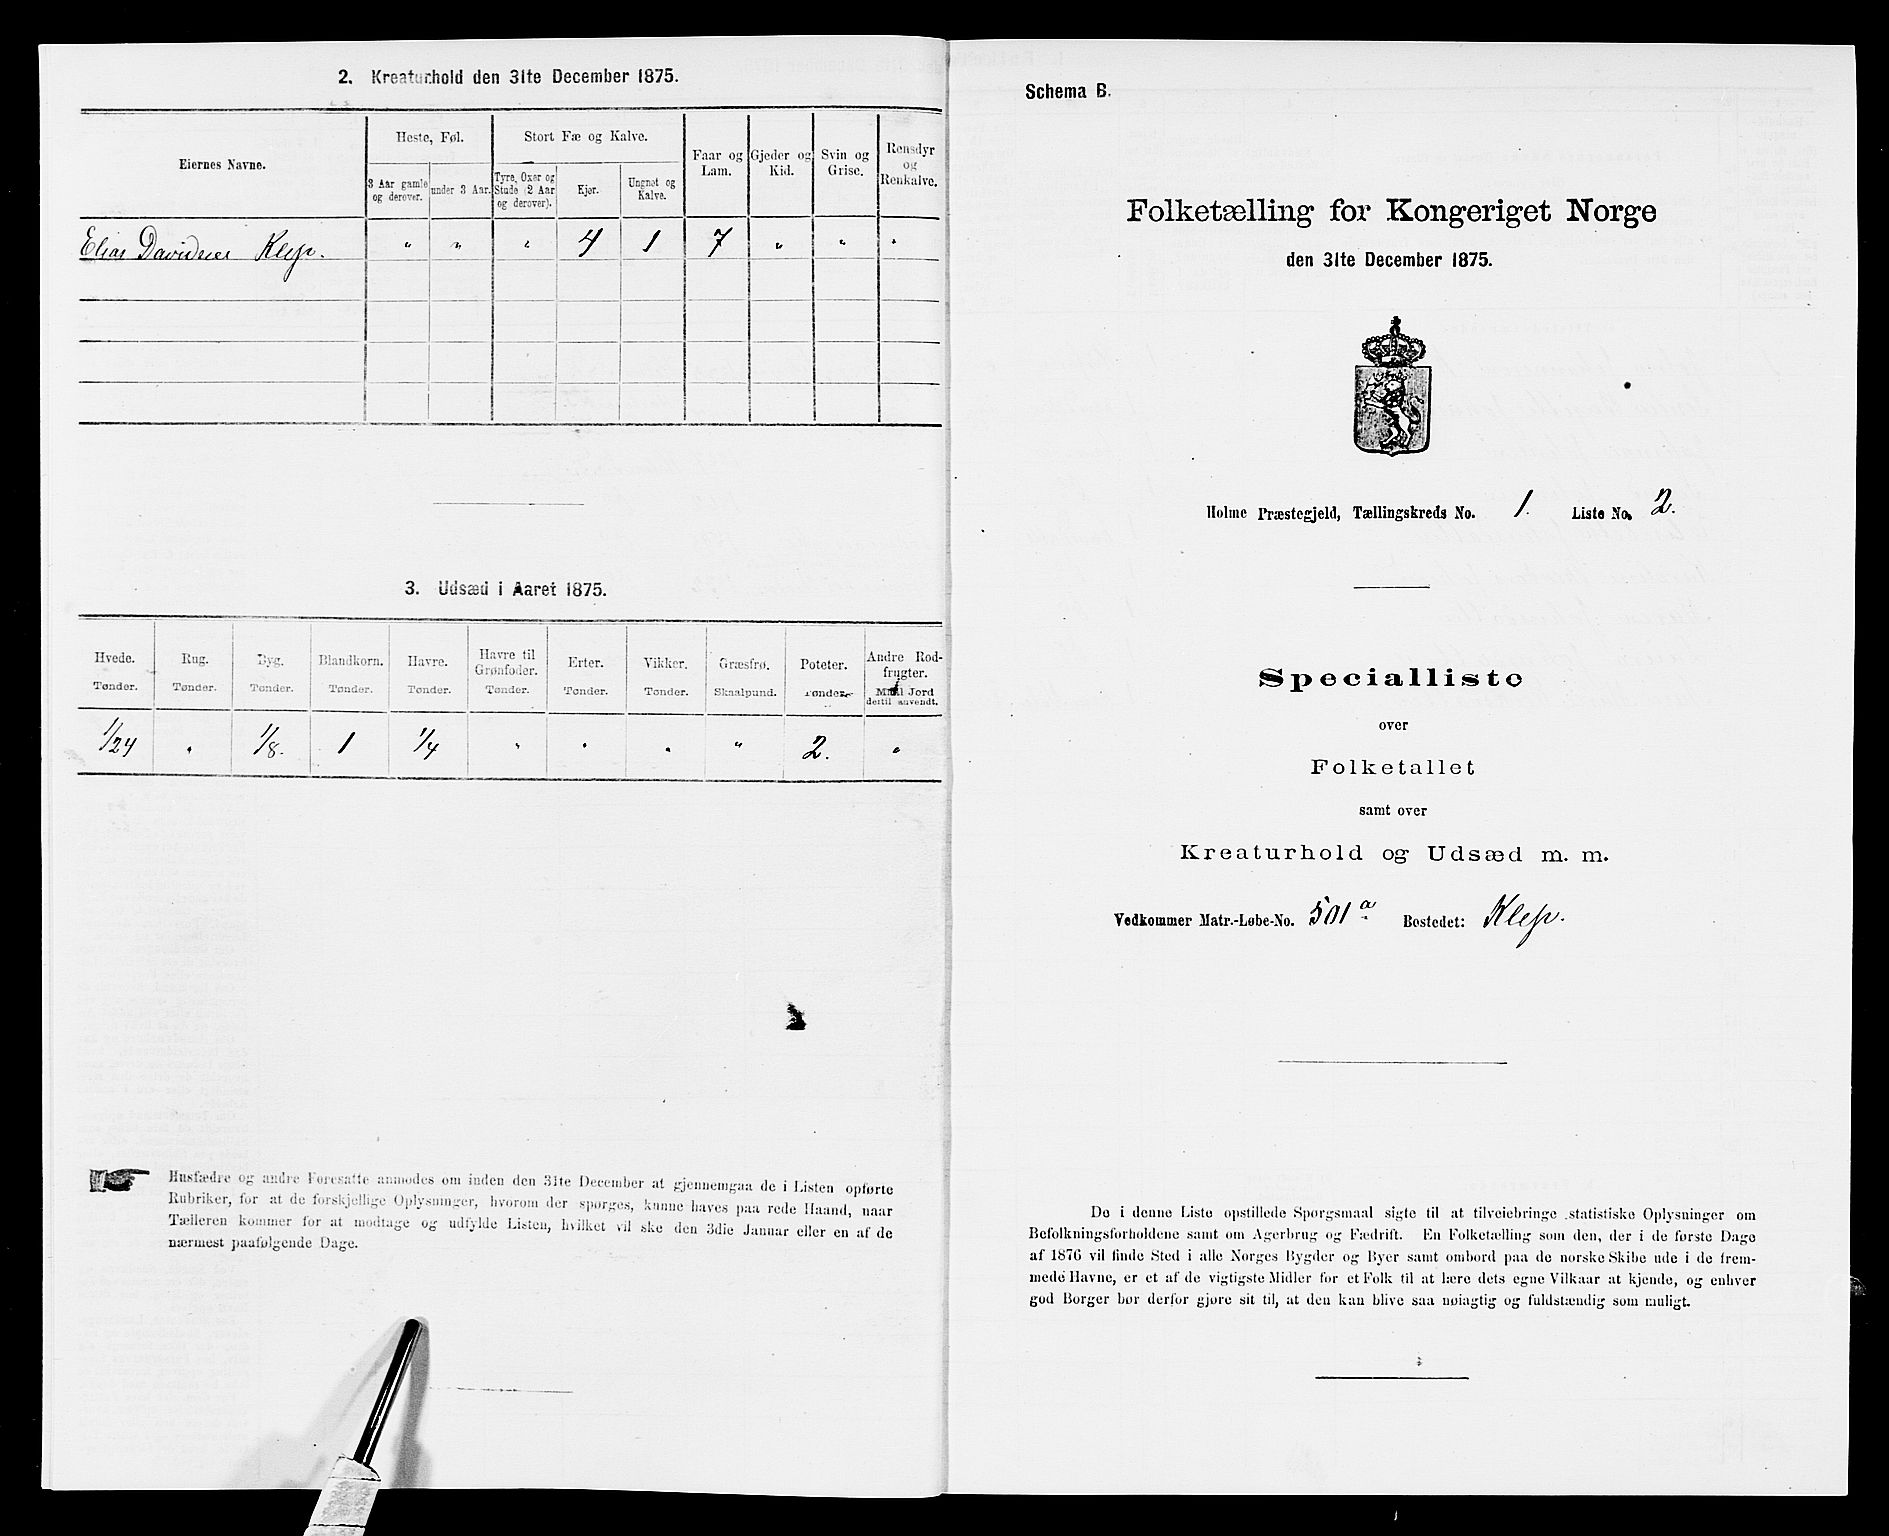 2. Kreaturhold den 31te December 1875.
Eiernes Navne.
Heste, Føl.
Stort Fæ og Kalve.
Faar og Lam.
Gjeder og Kid.
Svin og Grise.
Rensdyr og Renkalve.
3 Aar gamle og derover.
under 3 Aar.
Tyre, Oxer og Stude (2 Aar og derover).
Kjør.
Ungnøt og Kalve.
Elias Davidsen Klep. " " " 4 1 7 " " "
3. Udsæd i Aaret 1875.
Hvede. Rug. Byg. Blandkorn. Havre. Havre til Grønfoder. Erter. Vikker. Græsfrø. Poteter. Andre Rodfrugter.
Tønder. Tønder. Tønder. Tønder. Tønder. Tønder. Tønder. Tønder. Skaalpund. Tønder. Maal Jord dertil anvendt.
1/24 " 1/8. 1 1/4 " " " " 2. "
Husfædre og andre Foresatte anmodes om inden den 31te December at gjennemgaa de i Listen opførte
Rubriker, for at de forskjellige Oplysninger, hvorom der spørges, kunne haves paa rede Haand, naar
Tælleren kommer for at modtage og udfylde Listen, hvilket vil ske den 3die Januar eller en af de
nærmest paafølgende Dage.
Schema B.
Folketælling for Kongeriget Norge
den 31te December 1875.
Holme Præstegjeld, Tællingskreds No. 1. Liste No. 2.
Specialliste
over
Folketallet
samt over
Kreaturhold og Udsæd m. m.
Vedkommer Matr.-Løbe-No. 501 a. Bostedet: Klep.
De i denne Liste opstillede Spørgsmaal sigte til at tilveiebringe statistiske Oplysninger om
Befolkningsforholdene samt om Agerbrug og Fædrift. En Folketælling som den, der i de første Dage
af 1876 vil finde Sted i alle Norges Bygder og Byer samt ombord paa de norske Skibe ude i de frem-
mede Havne, er et af de vigtigste Midler for et Folk til at lære dets egne Vilkaar at kjende, og enhver
god Borger bør derfor gjøre sit til, at den kan blive saa nøiagtig og fuldstændig som muligt.